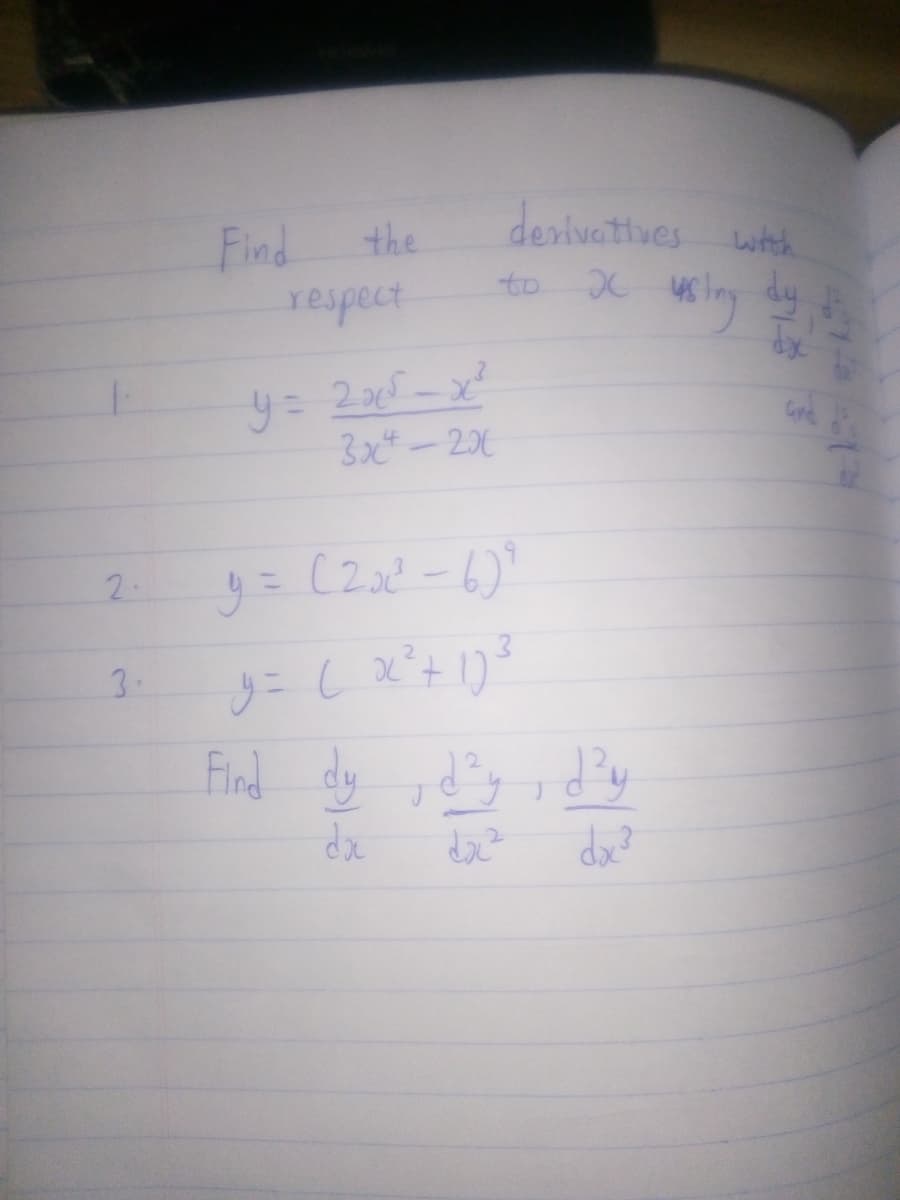 Find the derivatives with
respect to x using dy/dx,
and
1. y = (2x⁵ - x³)/(3x⁴ - 2x)
2. y = (2x³ - 6)⁹
3. y = (x² + 1)³
Find dy/dx, d²y/dx², d²y/dx³